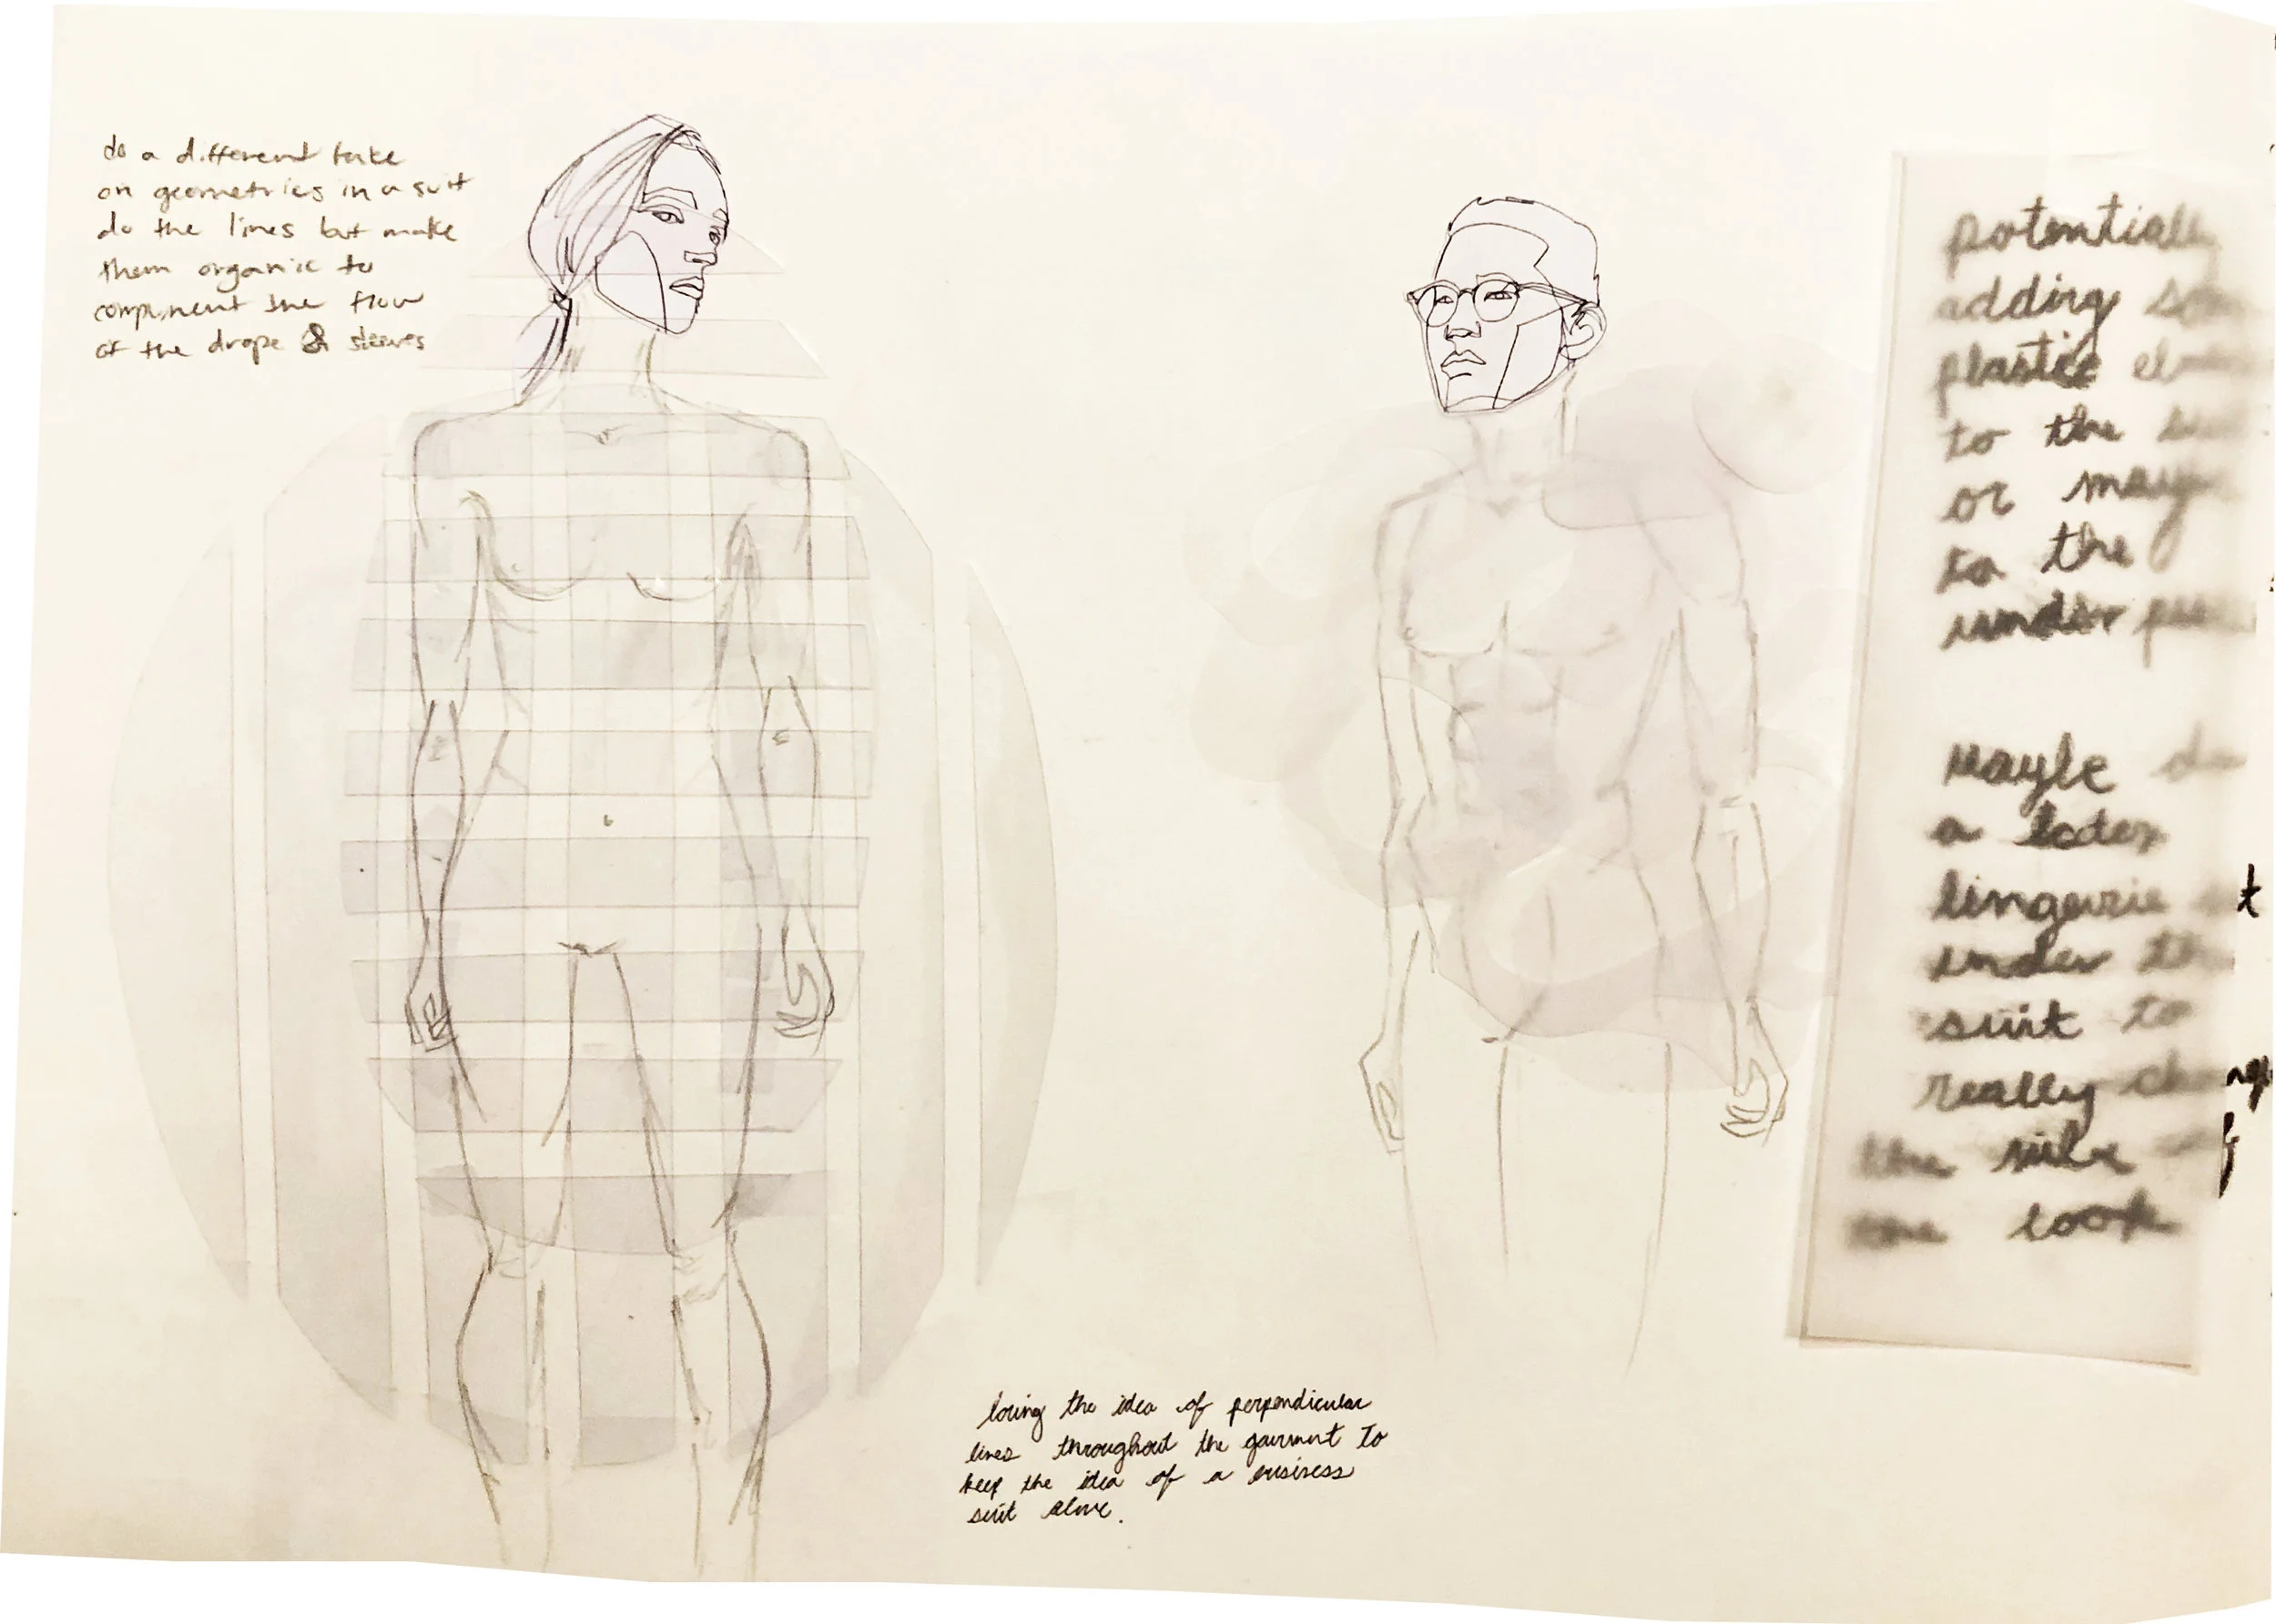 do a different take
on geometries in a suit
do the lines but make
them organic to
component the flow
of the drape & sleeves
loving the idea of perpendicular
lines throughout the garment to
keep the idea of a business
suit alive.
potentially
adding
plastic
to the
or
to the
under
Maybe do
a latex
lingerie
under the
suit to
really change
the
the look